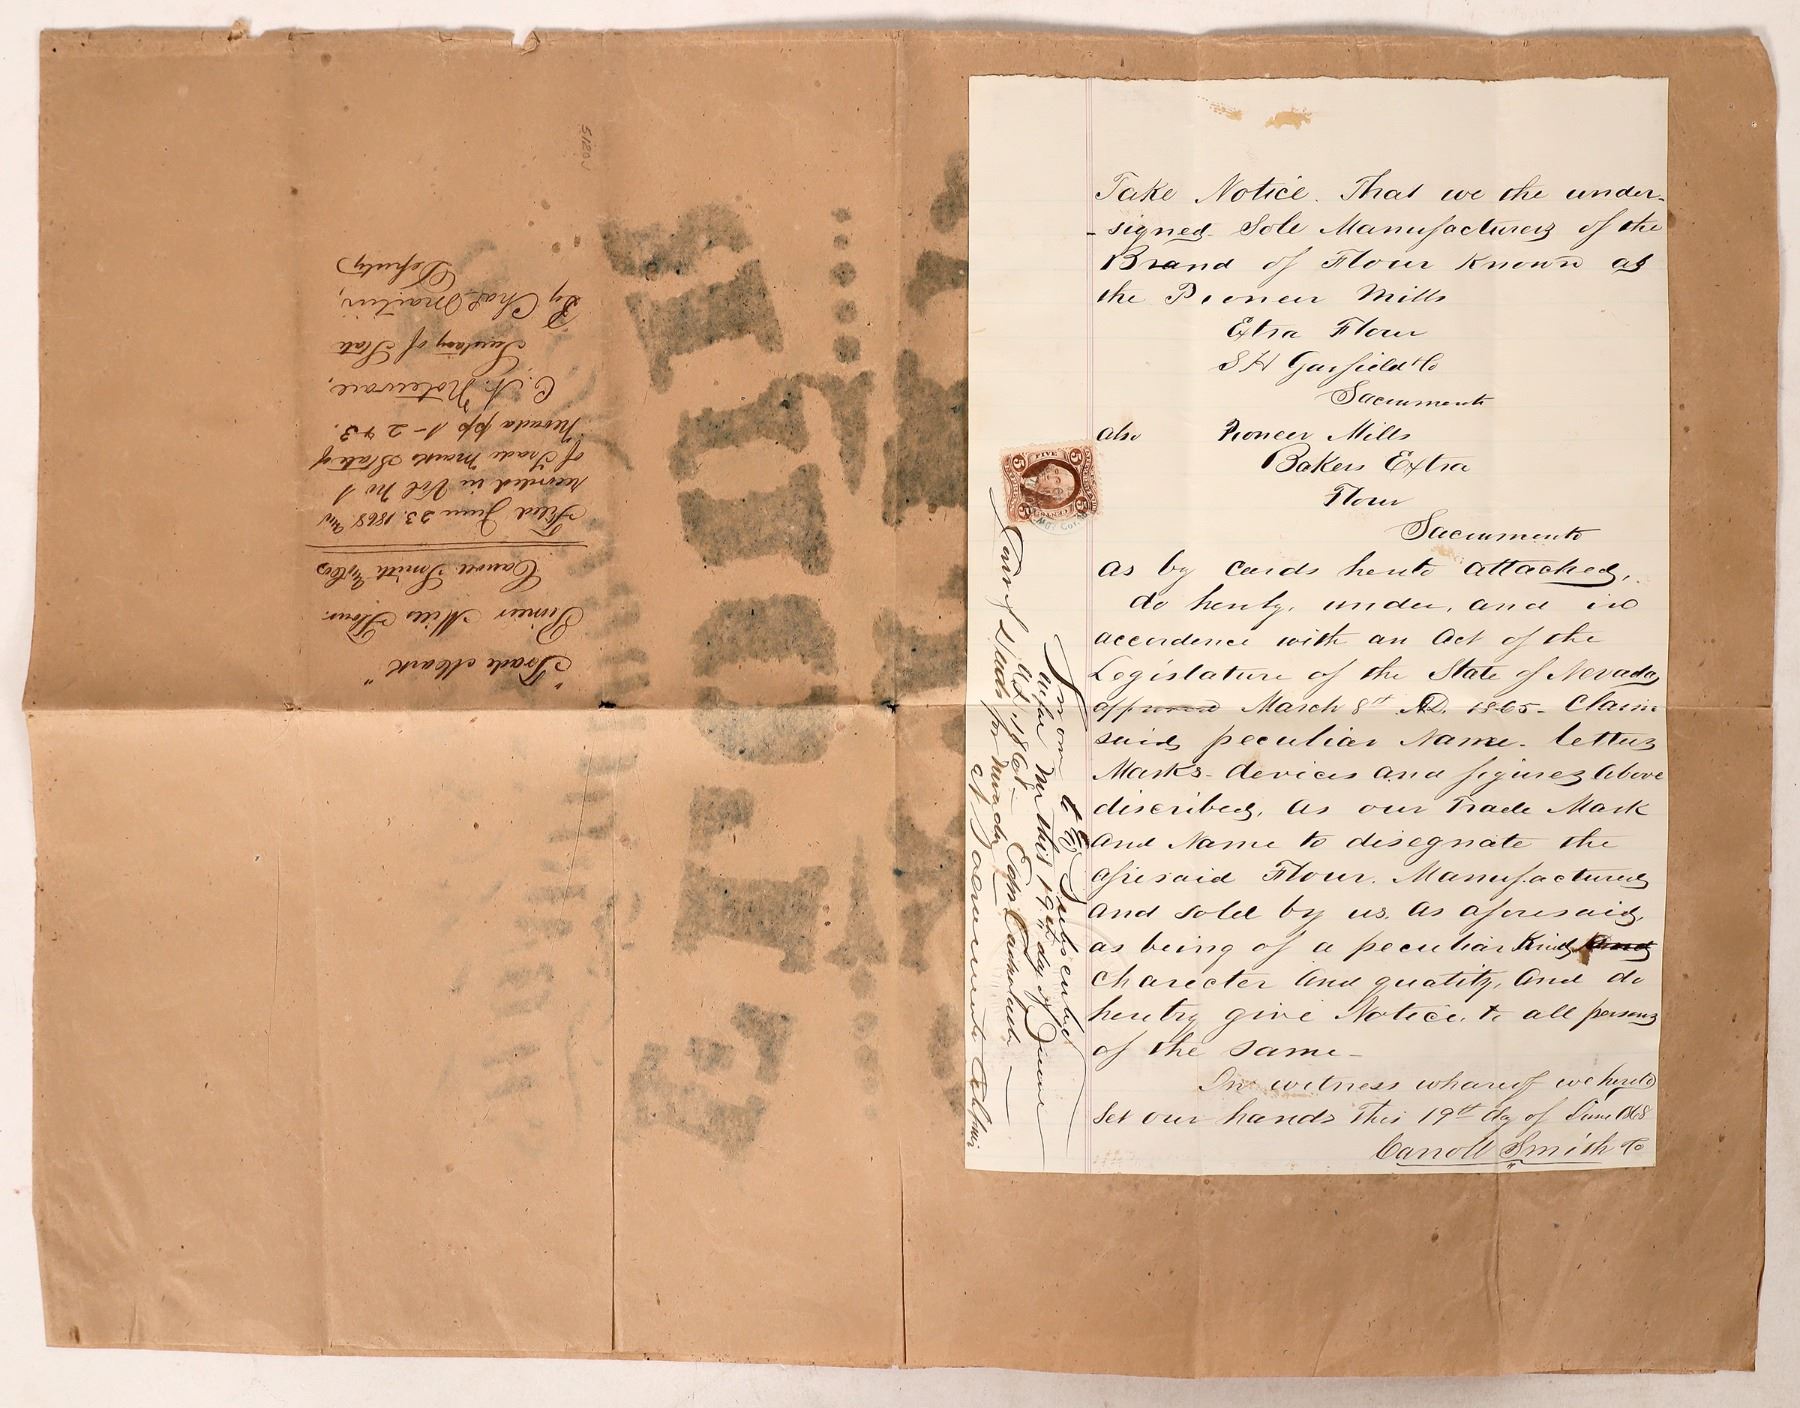 Take Notice. That we the under-
-signed Sole Manufacturers of the
Brand of Flour Known as
the Pioneer Mills
Extra Flour
S H Garfield & Co
Sacramento
also Pioneer Mills
Bakers Extra
Flour
Sacramento
as by Cards hereto attached,
do hereby, under, and in
accordence with an Act of the
Legislature of the State of Nevada
approved March 8th A.D. 1865 - Claim
said peculiar Name - letters
Marks - devices and figures above
discribed, as our Trade Mark
and Name to disegnate the
aforesaid Flour. Manufactured
and sold by us, as aforesaid,
as being of a peculiar Kind
charecter and quality, and do
hereby give Notice, to all persons
of the same -
In witness whareof we hereto
Set our hands This 19th day of June 1868
Carroll Smith & Co
Sworn to & Subscribed
before Me this 19th day of June
A.D. 1868 -
Com of Deeds for Nevada
At Sacramento California
FIVE
5
5
5
5
CENTS
"Trade Mark"
Pioneer Mills Flour.
Carroll Smith & Co's
Filed June 23. 1868 and
recorded in Vol No 1
of Trade Marks State of
Nevada pp 1 - 2 & 3.
C. N. Noteware,
Secretary of State
By Chas. Martin,
Deputy
5120J